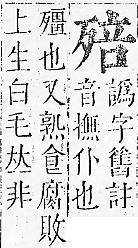 殕
譌字舊註
音撫仆也
殭也又熟食腐敗
上生白毛𠀤非